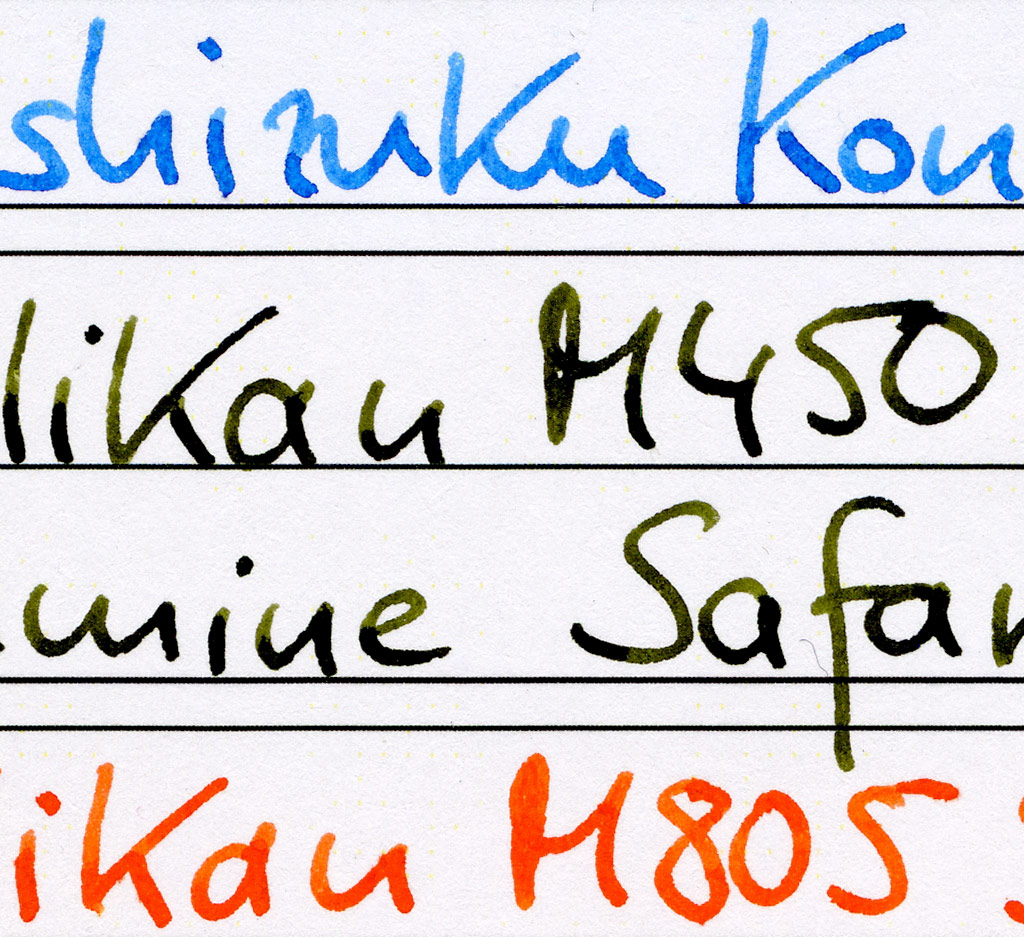 shizuku Kon
likan M450
umine Safar
ikan M805